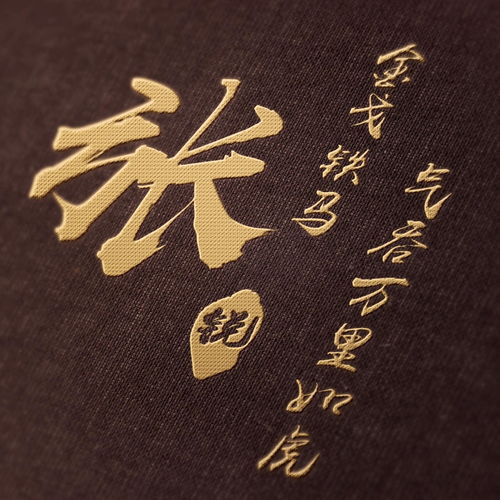 张
金戈铁马
气吞万里如虎